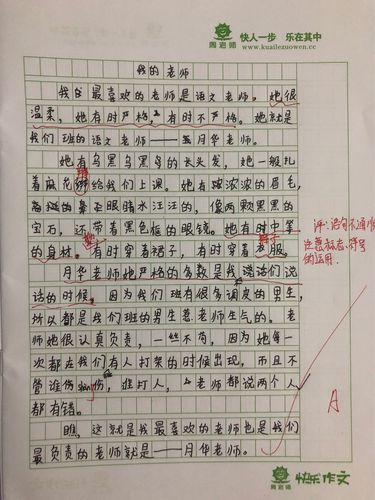 周老师
快人一步 乐在其中
www.kuailezuowen.cc
我的老师
我的最喜欢的老师是语文老师。她很
温柔,她有时严格,有时不严格。她就是
我们班的语文老师——王月华老师。
她有乌黑乌黑的长头发,她一般扎
着麻花辫给我们上课。她有浓浓的眉毛,
眼睛水汪汪的,像两颗黑黑的
宝石,还带着黑色框的眼镜。她有时中等
的身材。有时穿着裙子,有时穿着衣服。
裤子
月华老师她严格的多数是我们说
话的时候。因为我们班有很多调皮的男生,
所以都是我们班的男生惹老师生气的。老
师她很认真负责,一丝不苟,因为她每一
次都在我们有人打架的时候出现,而且不
管谁伤shāng伤,谁打人,老师都说两个人
都有错。
瞧,这就是我最喜欢的老师也是我们
最负责的老师就是——月华老师。
评:语句不通顺
注意标点符号
的运用.
A
快乐作文